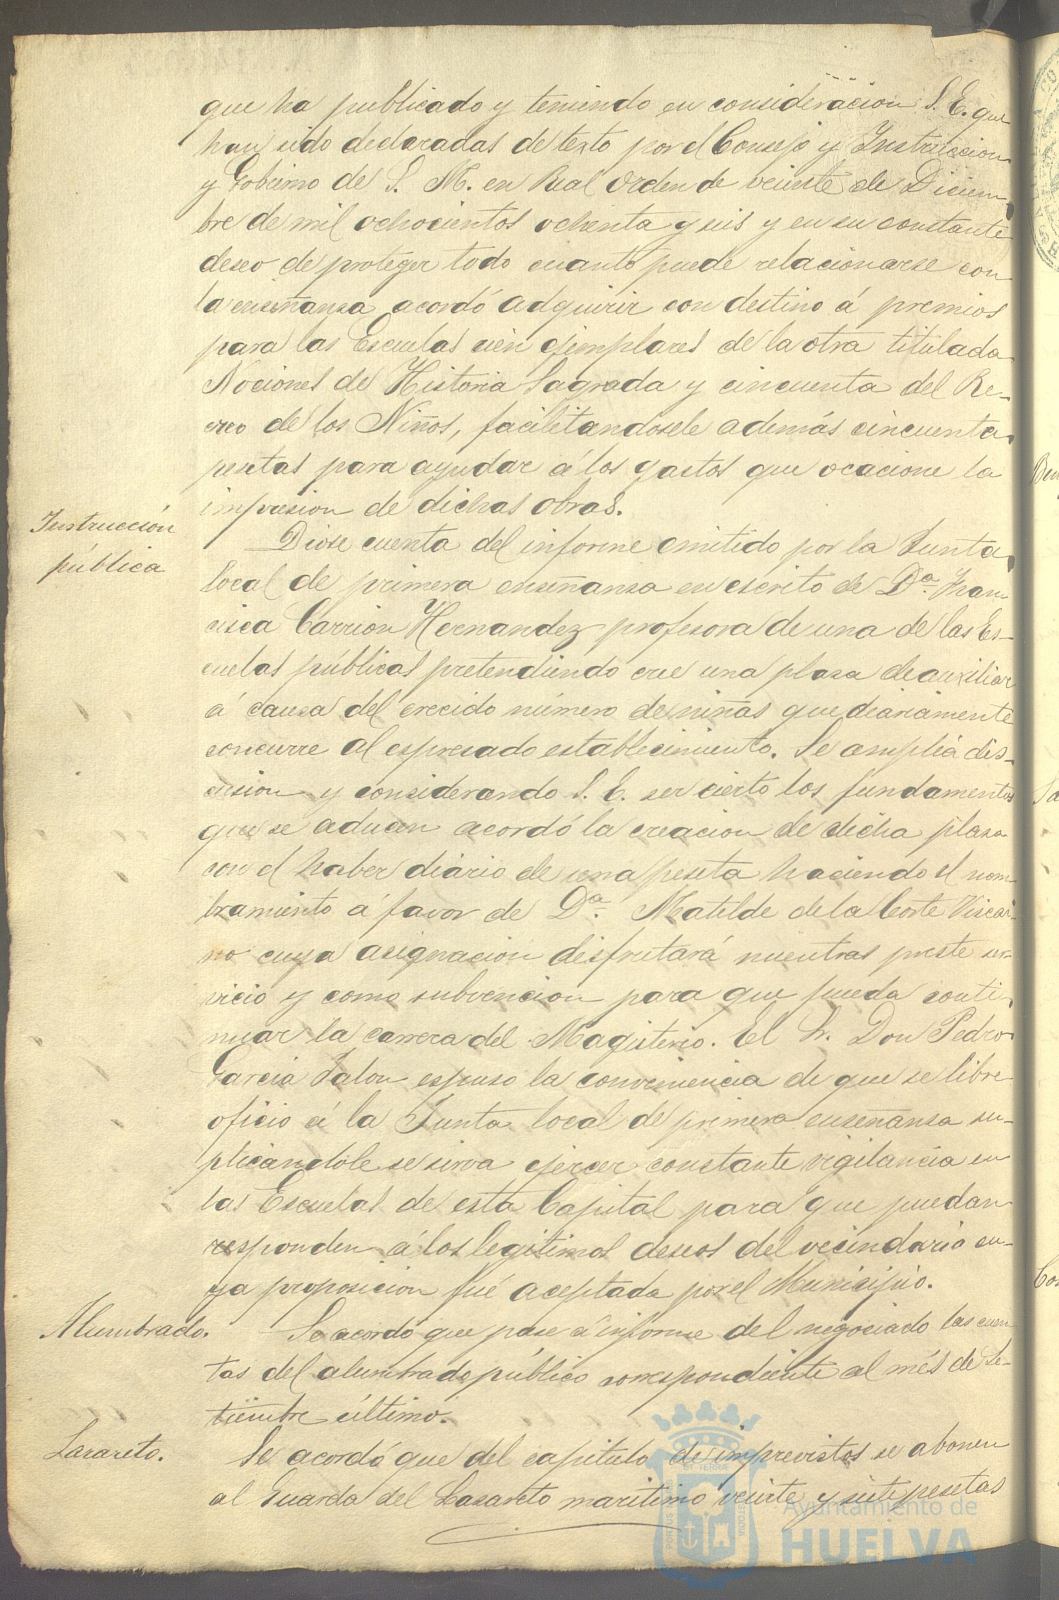 que ha publicado y teniendo en consideracion S. E. que
han sido declaradas de texto por el Consejo y Instruccion
y Gobierno de S. M. en Real orden de veinte de Diciem
bre de mil ochocientos ochenta y seis y en su constante
deseo de proteger todo cuanto puede relacionarse con
la enseñanza acordó adquirir con destino á premios
para las Escuelas cien ejemplares de la otra titulada
Nociones de Historia Sagrada y cincuenta del Re-
creo de los Niños, facilitandosele además cincuenta
pesetas para ayudar á los gastos que ocacione la
impresion de dichas obras.
Instrucción
pública
Diose cuenta del informe emitido por la Junta
local de primera enseñansa en escrito de Dª. Fran
cisca Carrion Hernandez profesora de una de las Es-
cuelas públicas pretendiendo cree una plasa de auxiliar
á causa del crecido número de niñas que diariamente
concurre al espresado establecimiento. Se amplia dis-
cusion y considerando S. E. ser cierto los fundamentos
que se aducen acordó la creacion de dicha plasa
con el haber diário de una peseta haciendo el nom
bramiento á favor de Dª. Matilde de la Corte Viscai
no cuya asignacion disfrutará mientras preste ser-
vicio y como subvencion para que pueda conti
nuar la carrera del Magisterio. El Sr. Don Pedro
Garcia Jalon espuso la conveniencia de que se libre
oficio á la Junta local de primera enseñansa su-
plicandole se sirva ejercer constante vigilancia en
las Escuelas de esta Capital para que puedan
responden á los legitimos deseos del vecindario cu-
ya proposicion fué aceptada por el Municipio.
Alumbrado.
Se acordó que pase á informe del negociado las cuen
tas del alumbrado público correspondiente al més de Se-
tiembre último.
Lazareto.
Se acordó que del capitulo de imprevistos se abonen
al Guarda del Lasareto maritimo veinte y siete pesetas
Ayuntamiento de
HUELVA